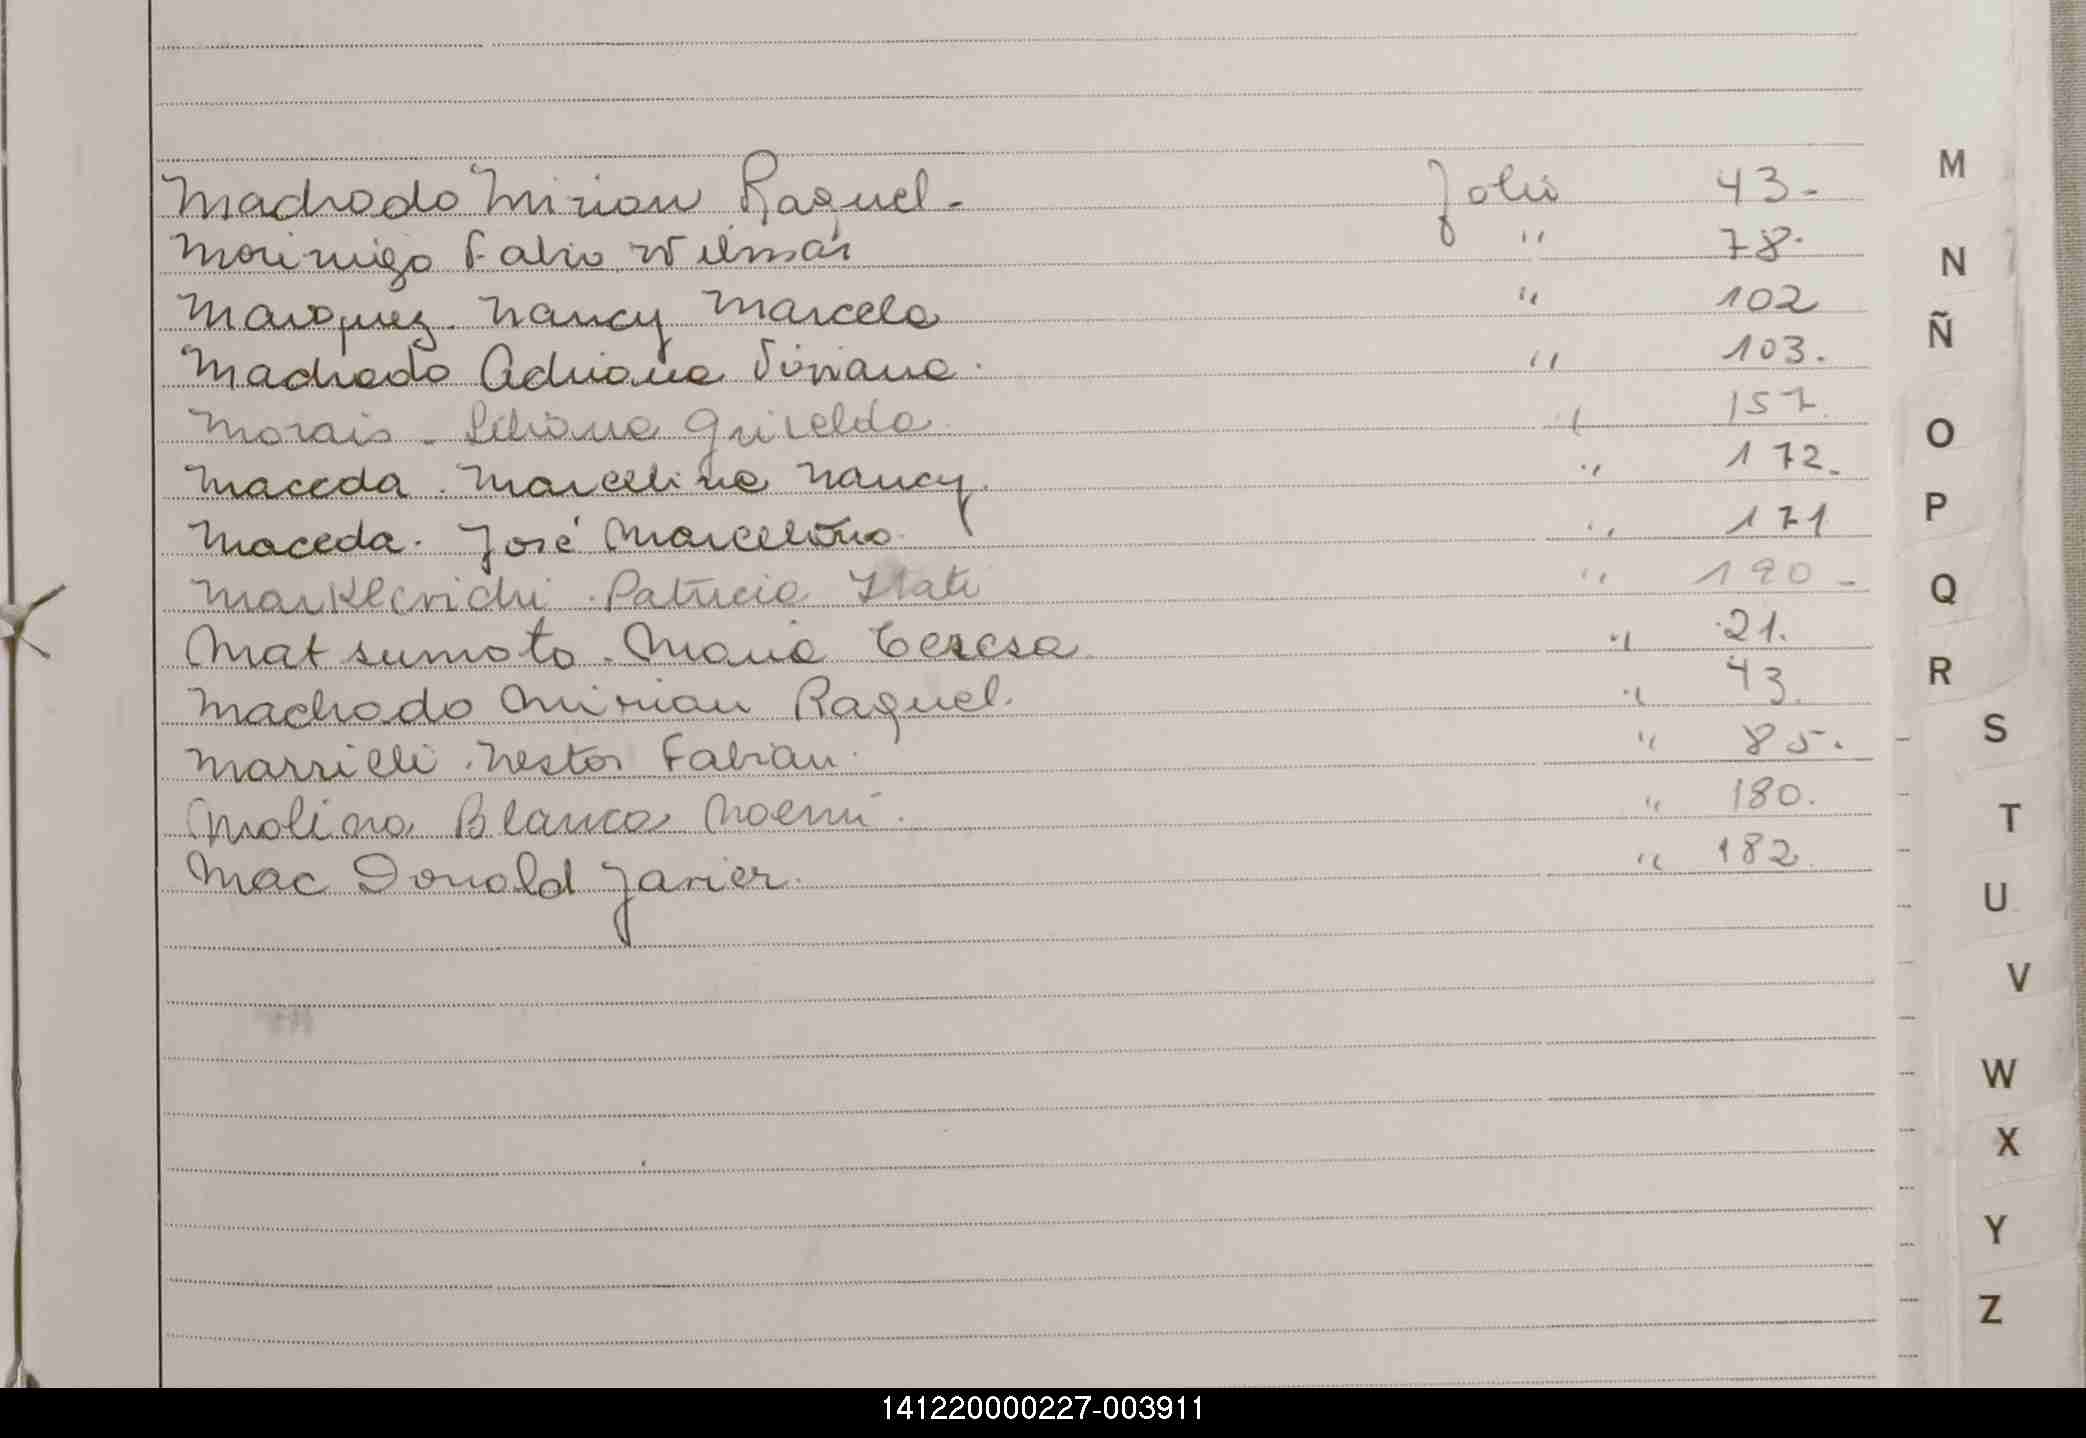 Machado Mirian Raquel. Folio 43.
Morinigo Fabio Wilmar " 78.
Marquez. Nancy Marcela " 102
Machado Adriana Viviana. " 103.
Morais. Liliana Griselda. " 157.
Maceda. Marcelina Nancy. " 172.
Maceda. José Marcelino. " 171
Marklevichi. Patricia Itati " 190.
Matsumoto. Maria Teresa. " 21.
Machado Mirian Raquel. " 43.
Marrilli. Nestor Fabian. " 85.
Molina Blanca Noemi. " 180.
Mac Donald Javier. " 182.
M
N
Ñ
O
P
Q
R
S
T
U
V
W
X
Y
Z
141220000227-003911